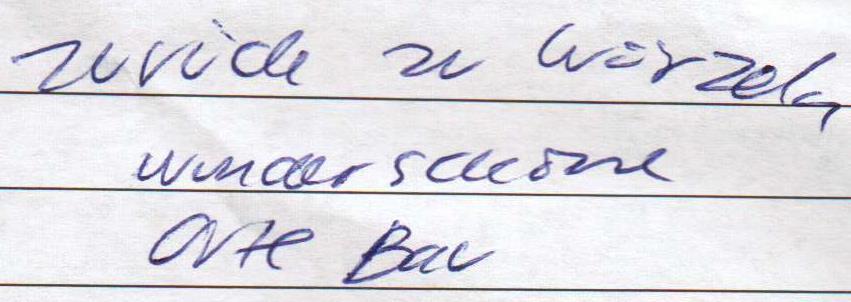 zurück zu Wurzeln
wunderschöne
Orte Bau